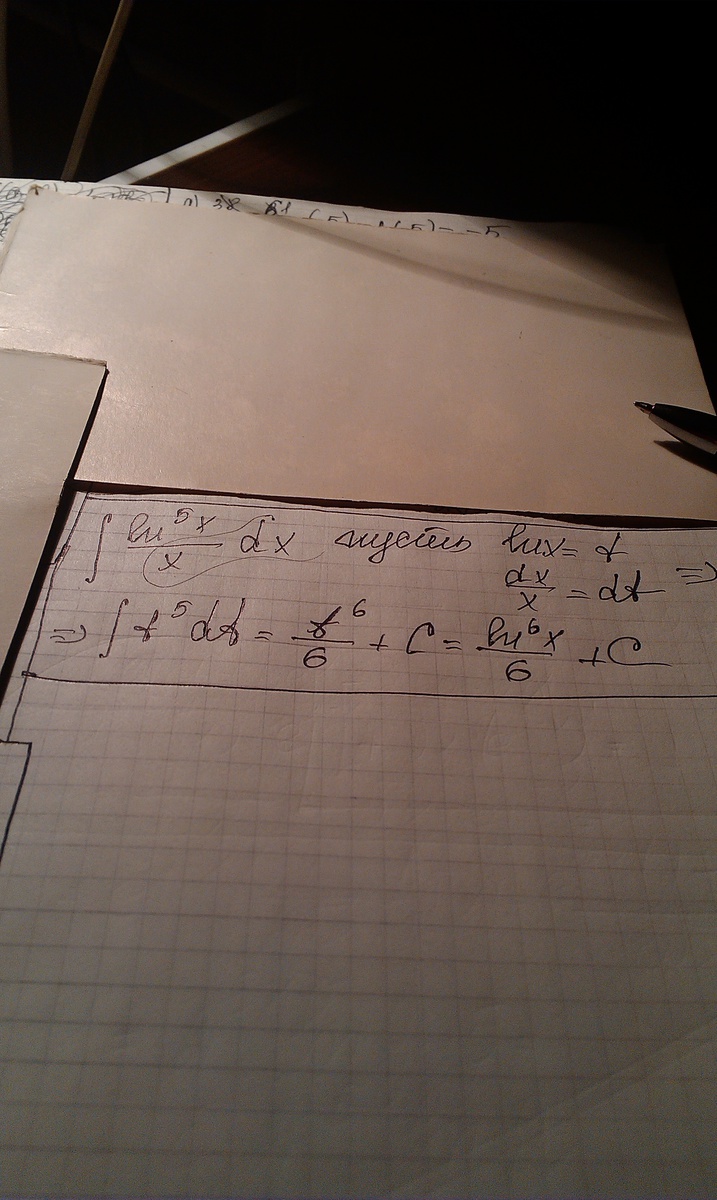 ∫ ln⁵x/x dx пусть lnx = t
dx/x = dt ⇒
⇒ ∫ t⁵ dt = t⁶/6 + C = ln⁶x/6 + C